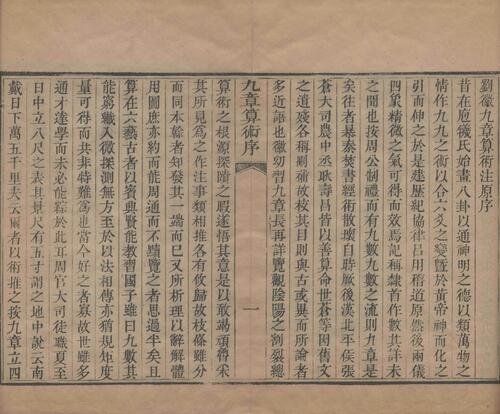 劉徽九章算術注原序
昔在庖犧氏始畫八卦以通神明之德以類萬物之
情作九九之術以合六爻之變暨於黃帝神而化之
引而伸之於是建歷紀協律呂用稽道原然後兩儀
四象精微之氣可得而效焉記稱隸首作數其詳未
之聞也按周公制禮而有九數九數之流則九章是
矣往者暴秦焚書經術散壞自時厥後漢北平侯張
蒼大司農中丞耿壽昌皆以善算命世蒼等因舊文
之遺殘各稱刪補故校其目則與古或異而所論者
多近語也徽幼習九章長再詳覽觀陰陽之割裂總
九章算術序
一
算術之根源探賾之暇遂悟其意是以敢竭頑魯采
其所見為之作注事類相推各有攸歸故枝條雖分
而同本榦者知發其一端而已又所析理以辭解體
用圖庶亦約而能周通而不黷覽之者思過半矣且
算在六藝古者以賓興賢能教習國子雖曰九數其
能窮纖入微探測無方至於以法相傳亦猶規矩度
量可得而共非特難為也當今好之者寡故世雖多
通才達學而未必能綜於此耳周官大司徒職夏至
日中立八尺之表其景尺有五寸謂之地中說云南
戴日下萬五千里夫云爾者以術推之按九章立四